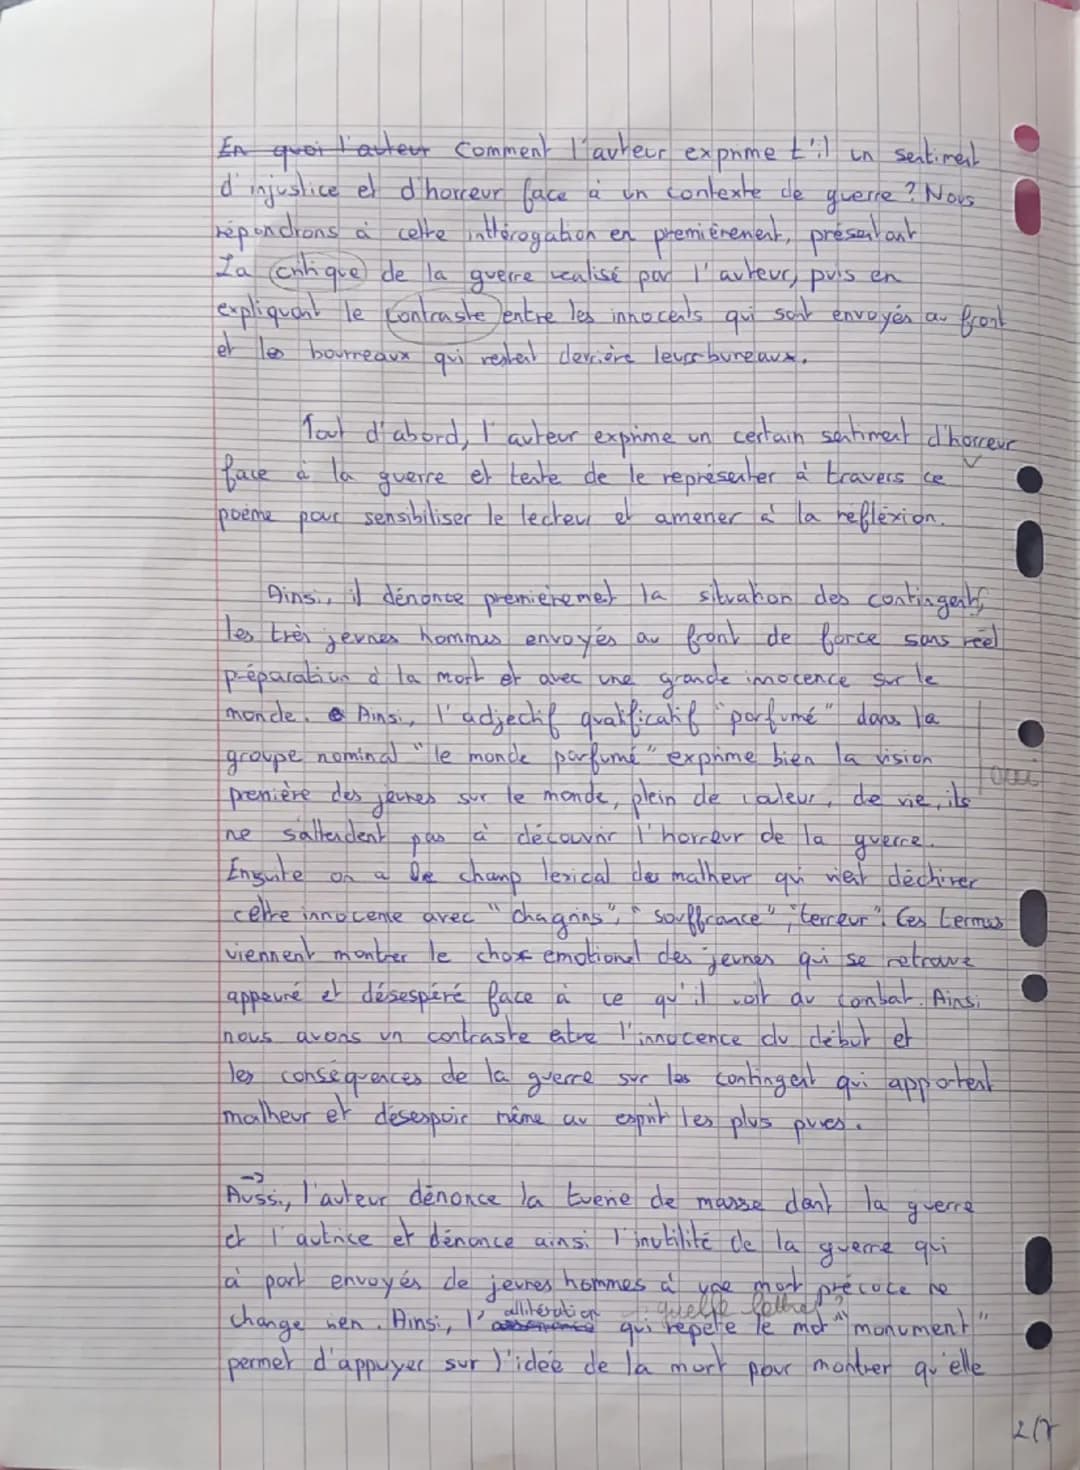 En quoi l'auteur Comment l'auteur exprime t'il un sentiment
d'injustice et d'horreur face à un contexte de guerre ? Nous
répondrons à cette intérogation en premièrement, présentant
La critique de la guerre realisé par l'auteur, puis en
expliquant le contraste entre les innocents qui sont envoyés au front
et les bourreaux qui restent derrière leurs bureaux.
Tout d'abord, l'auteur exprime un certain sentiment d'horreur
face à la guerre et tente de le représenter à travers ce
poème pour sensibiliser le lecteur et amener à la réfléxion.
Ainsi, il dénonce premièremet la situation des contingents,
les très jeunes hommes envoyés au front de force sans réel
préparation à la mort et avec une grande innocence sur le
monde. Ainsi, l'adjectif qualificatif "parfumé" dans la
groupe nominal "le monde parfumé" exprime bien la vision
première des jeunes sur le monde, plein de valeur, de vie, ils
oui
ne s'attendent pas à découvrir l'horreur de la guerre.
Ensuite on a le champ lexical du malheur qui vient déchirer
cette innocence avec "chagrins", "souffrance", "terreur". Ces termes
viennent montrer le chox émotionel des jeunes qui se retrouve
appeuré et désespéré face à ce qu'il voit au combat. Ainsi
nous avons un contraste entre l'innocence du début et
les conséquences de la guerre sur les contingent qui apportent
malheur et désespoir même au esprit les plus pures.
Aussi, l'auteur dénonce la tuerie de masse dont la guerre
et l'autrice et dénonce ainsi l'inutilité de la guerre qui
à part envoyés de jeunes hommes à une mort précoce ne
quelle lettre ?
change rien. Ainsi, l'allitération qui répète le mot "monument"
permet d'appuyer sur l'idée de la mort pour montrer qu'elle